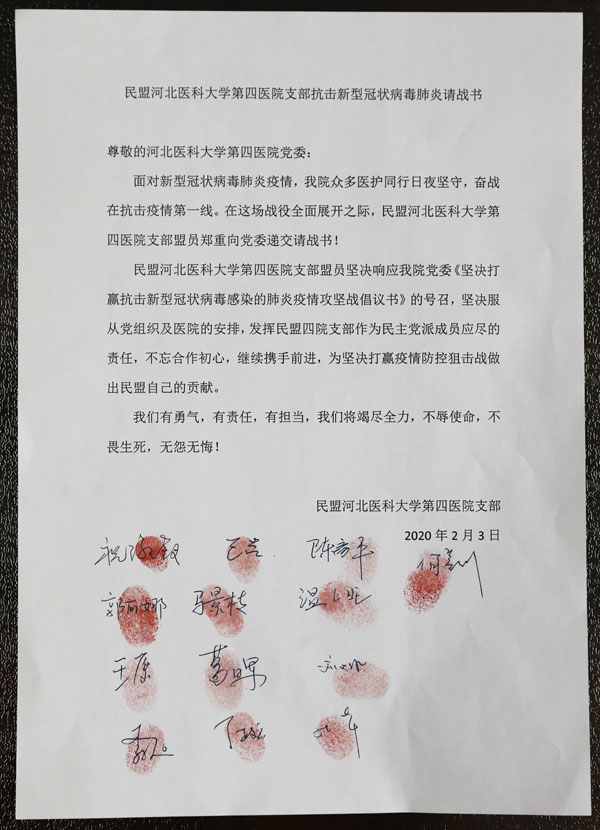 民盟河北医科大学第四医院支部抗击新型冠状病毒肺炎请战书
尊敬的河北医科大学第四医院党委：
面对新型冠状病毒肺炎疫情，我院众多医护同行日夜坚守，奋战
在抗击疫情第一线。在这场战役全面展开之际，民盟河北医科大学第
四医院支部盟员郑重向党委递交请战书！
民盟河北医科大学第四医院支部盟员坚决响应我院党委《坚决打
赢抗击新型冠状病毒感染的肺炎疫情攻坚战倡议书》的号召，坚决服
从党组织及医院的安排，发挥民盟四院支部作为民主党派成员应尽的
责任，不忘合作初心，继续携手前进，为坚决打赢疫情防控狙击战做
出民盟自己的贡献。
我们有勇气，有责任，有担当，我们将竭尽全力，不辱使命，不
畏生死，无怨无悔！
民盟河北医科大学第四医院支部
2020 年 2 月 3 日
郭丽娜 马景枝
王康 葛晖